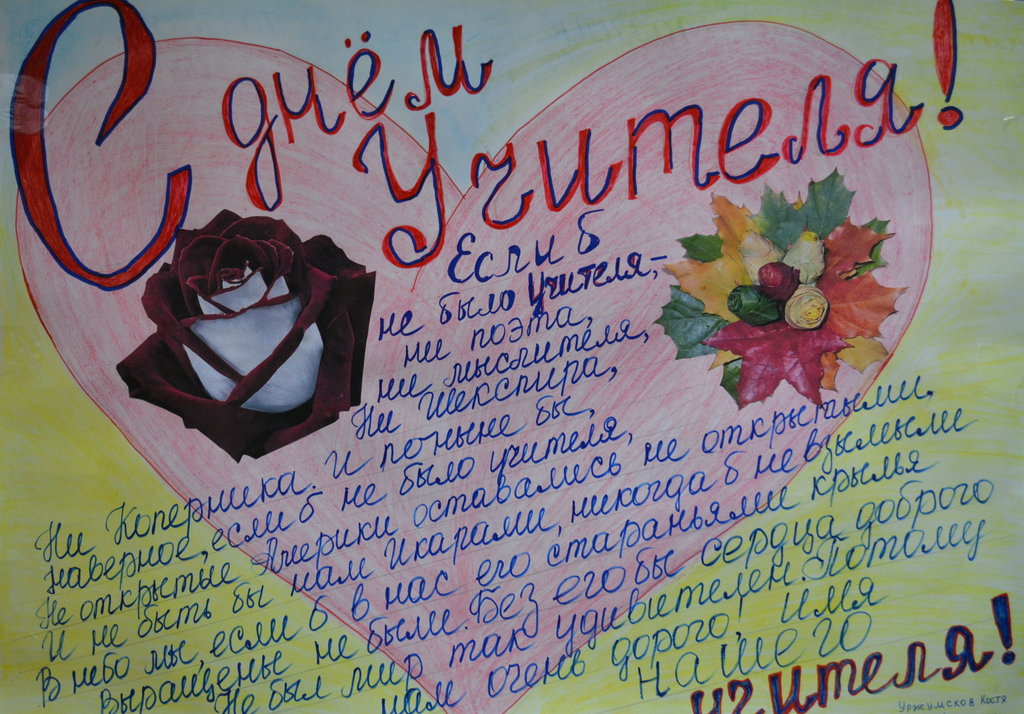 С днём
Учителя!
Если б
не было Учителя,-
ни поэта,
ни мыслителя,
Ни Шекспира,
Ни Коперника. И поныне бы,
наверное, если б не было учителя,
Не открытые Америки оставались не открытыми.
И не быть бы нам Икарами, никогда б не взмыли
В небо мы, если б в нас его стараньями крылья
Выращенье не были. Без его бы сердца доброго
Не был мир так удивителен. Потому
нам очень дорого, имя
нашего
учителя!
Уржумсков Костя